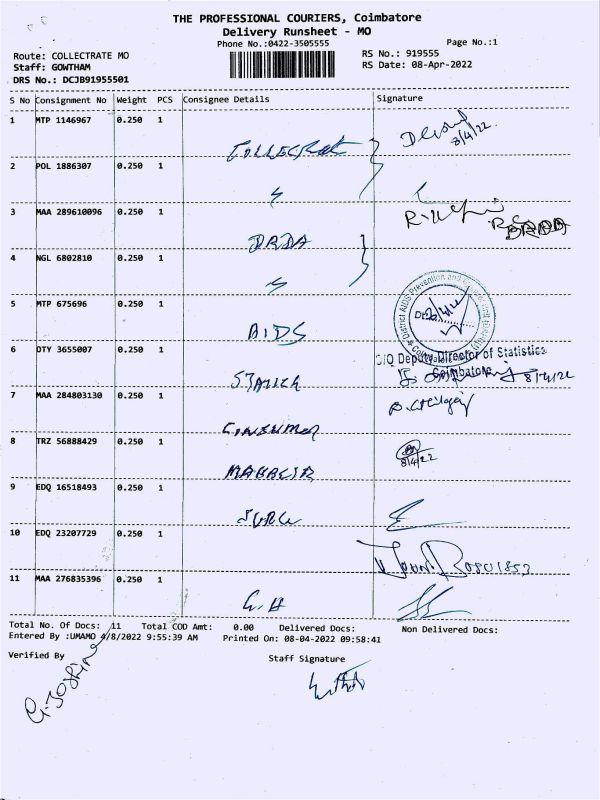 THE PROFESSIONAL COURIERS, Coimbatore
Delivery Runsheet - MO
Phone No.:0422-3505555
Page No.:1
Route: COLLECTRATE MO
RS No.: 919555
Staff: GOWTHAM
RS Date: 08-Apr-2022
DRS No.: DCJB91955501
S No Consignment No Weight PCS Consignee Details Signature
1 MTP 1146967 0.250 1
8/4/22
2 POL 1886307 0.250 1
3 MAA 289610096 0.250 1
DRDA
4 NGL 6802810 0.250 1
5 MTP 675696 0.250 1
AIDS
District AIDS Prevention and
6 DTY 3655007 0.250 1
O/O Deputy Director of Statistics
Coimbatore
8/4/22
7 MAA 284803130 0.250 1
8 TRZ 56888429 0.250 1
8/4/22
9 EDQ 16518493 0.250 1
10 EDQ 23207729 0.250 1
11 MAA 276835396 0.250 1
G.H
Total No. Of Docs: 11 Total COD Amt: 0.00 Delivered Docs: Non Delivered Docs:
Entered By :UMAMO 4/8/2022 9:55:39 AM Printed On: 08-04-2022 09:58:41
Verified By Staff Signature